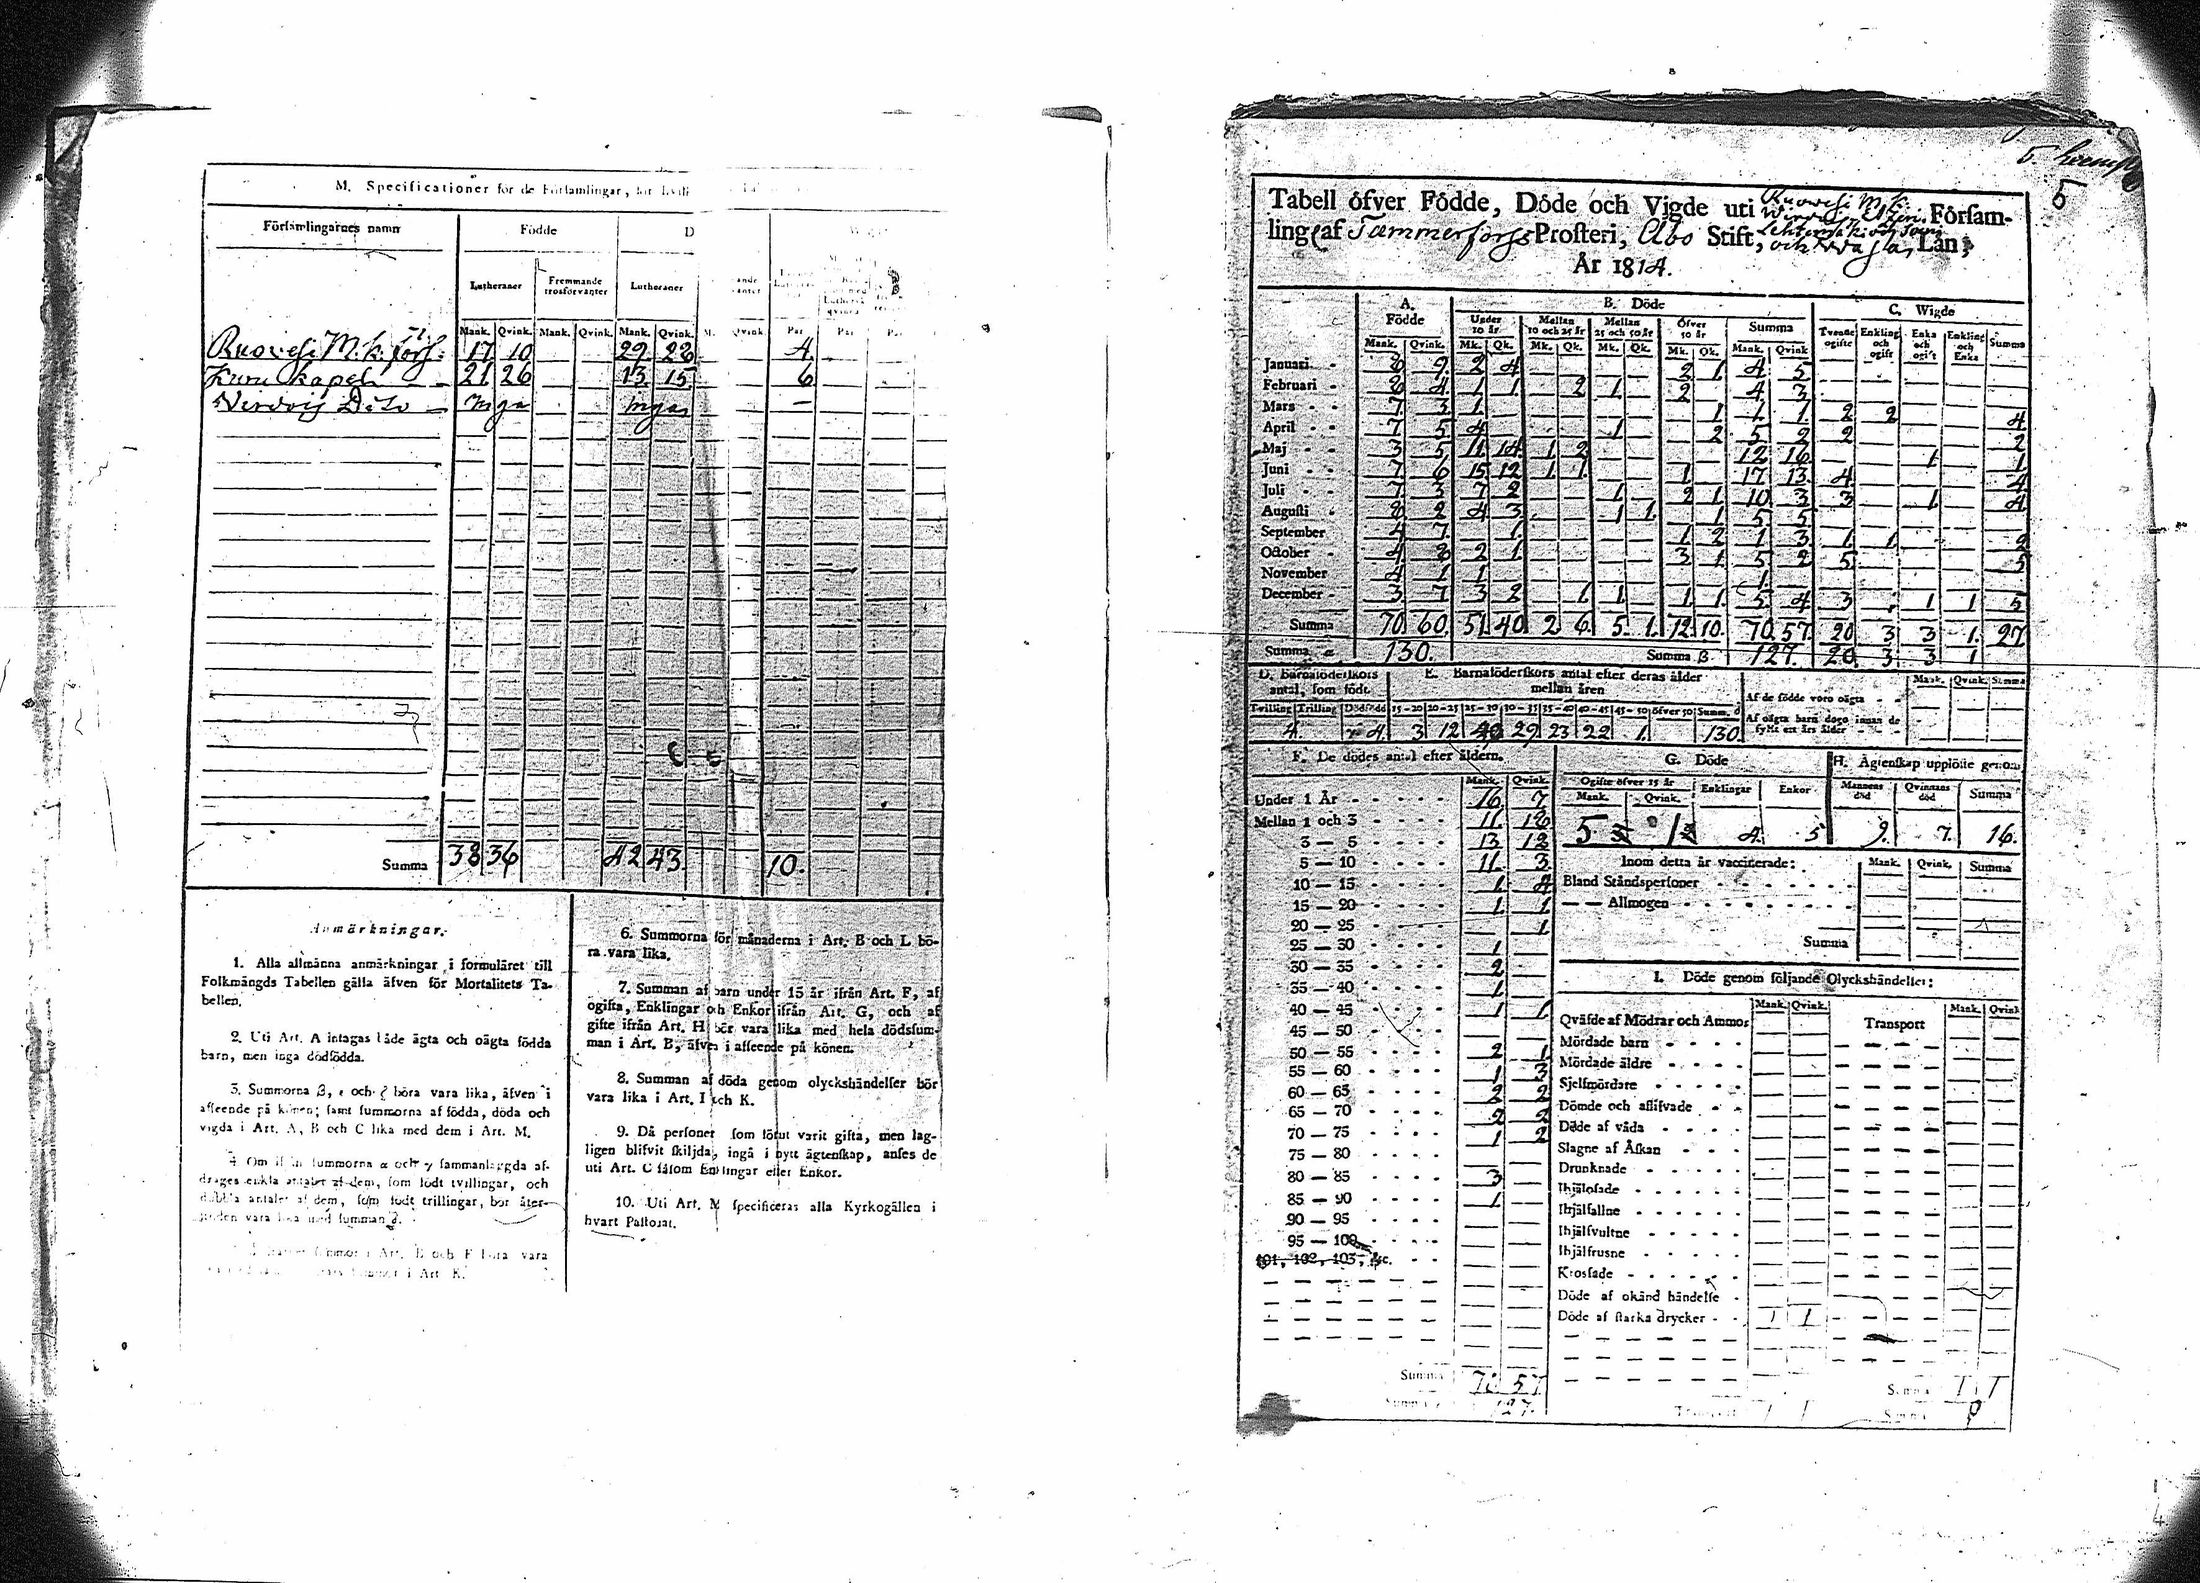 M. Specificationer för de Församlingar, för hvilk
Församlingarnes namn
Födde
D
Lutheraner
Fremmande trosförvanter
Lutheraner
Mank. Qvink. Mank. Qvink. Mank. Qvink. M. Qvink. Par Par
Ruovesi M. k. förs. 17 10 29 28 4
Kuru kapell 21 26 13 15 6
Virdois Dito inga inga —
Summa 38 36 42 43 10.
Anmärkningar.
1. Alla allmänna anmärkningar i formuläret till
Folkmängds Tabellen gälla äfven för Mortalitets Ta-
bellen.
2. Uti Art. A intagas både ägta och oägta födda
barn, men inga dödfödda.
3. Summorna β, ε och ζ böra vara lika, äfven i
afseende på könen; samt summorna af födda, döda och
vigda i Art. A, B och C lika med dem i Art. M.
4. Om ifrån summorna α och γ sammanlagda af-
drages enkla antalet af dem, som födt tvillingar, och
dubbla antalet af dem, som födt trillingar, bör åter-
stoden vara lika med summan δ.
Art. B och F böra vara
i Art. K.
6. Summorna för månaderna i Art. B och L bö-
ra vara lika.
7. Summan af barn under 15 år ifrån Art. F, af
ogifta, Enklingar och Enkor ifrån Art. G, och af
gifte ifrån Art. H bör vara lika med hela dödssum-
man i Art. B, äfven i afseende på könen.
8. Summan af döda genom olyckshändelser bör
vara lika i Art. I och K.
9. Då personer som förut varit gifta, men lag-
ligen blifvit skiljda, ingå i nytt ägtenskap, anses de
uti Art. C såsom Enklingar eller Enkor.
10. Uti Art. M specificeras alla Kyrkogällen i
hvart Pastorat.
5
Tabell öfver Födde, Döde och Vigde uti Ruovesi M. k. Försam-
ling af Tammerfors Prosteri, Åbo Stift, och Wasa Län,
År 1814.
A. Födde
B. Döde
C. Wigde
Under 10 år
Mellan 10 och 25 år
Mellan 25 och 50 år
Öfver 50 år
Summa
Tvenne ogifte
Enkling och ogift
Enka och ogift
Enkling och Enka
Summa
Mank. Qvink. Mk. Qk. Mk. Qk. Mk. Qk. Mk. Qk. Mank. Qvink
Januari 8 9 2 4 2 1 4 5
Februari 8 4 1 1 2 1 2 4 3
Mars 7 3 1 1 1 1 2 2 4
April 7 5 4 1 2 5 2 2 2
Maj 3 5 11 14 1 2 12 16 1 1
Juni 7 6 15 12 1 1 1 17 13 4 4
Juli 7 3 7 2 1 2 1 10 3 3 1 4
Augusti 8 2 4 3 1 1 1 5 5
September 4 7 1 1 2 1 3 1 1 2
October 4 8 2 1 3 1 5 2 5 5
November 4 1 1 1
December 3 7 3 2 1 1 1 1 5 4 3 1 1 5
Summa 70 60 51 40 2 6 5 1 12 10 70 57 20 3 3 1 27
Summa α 130. Summa β 127. 20 3 3 1
D. Barnaföderskors antal, som födt
E. Barnaföderskors antal efter deras ålder mellan åren
Mank. Qvink. Summa
Af de födde voro oägta
Af oägta barn dogo innan de fyllt ett års ålder
Tvilling Trilling Dödfödd 15—20 20—25 25—30 30—35 35—40 40—45 45—50 öfver 50 Summ. δ
4 4 3 12 29 23 22 1 130
F. De dödes antal efter åldern.
Mank. Qvink.
Under 1 År 16 7
Mellan 1 och 3 11 18
3 — 5 13 12
5 — 10 11 3
10 — 15 1 4
15 — 20 1 1
20 — 25 1
25 — 30 1
30 — 35 2
35 — 40 1
40 — 45 1 1
45 — 50
50 — 55 2 1
55 — 60 1 3
60 — 65 2 2
65 — 70 2 2
70 — 75 1 2
75 — 80
80 — 85 3
85 — 90 1
90 — 95
95 — 100
101, 102, 103, &c.
Summa 70 57
127.
G. Döde
Ogifte öfver 15 år
Mank. Qvink.
Enklingar
Enkor
5 1 4 5
H. Ägtenskap upplöste genom
Mannens död
Qvinnans död
Summa
9 7 16
Inom detta år vaccinerade:
Mank. Qvink. Summa
Bland Ståndspersoner
— — Allmogen
Summa
I. Döde genom följande Olyckshändelser:
Mank. Qvink.
Transport
Mank. Qvink
Qväfde af Mödrar och Ammor
Mördade barn
Mördade äldre
Sjelfmördare
Dömde och aflifvade
Döde af våda
Slagne af Åskan
Drunknade
Ihjälosade
Ihjälfallne
Ihjälsvultne
Ihjälfrusne
Krossade
Döde af okänd händelse
Döde af starka drycker 1 1
Summa 1 1
Transport 1 1